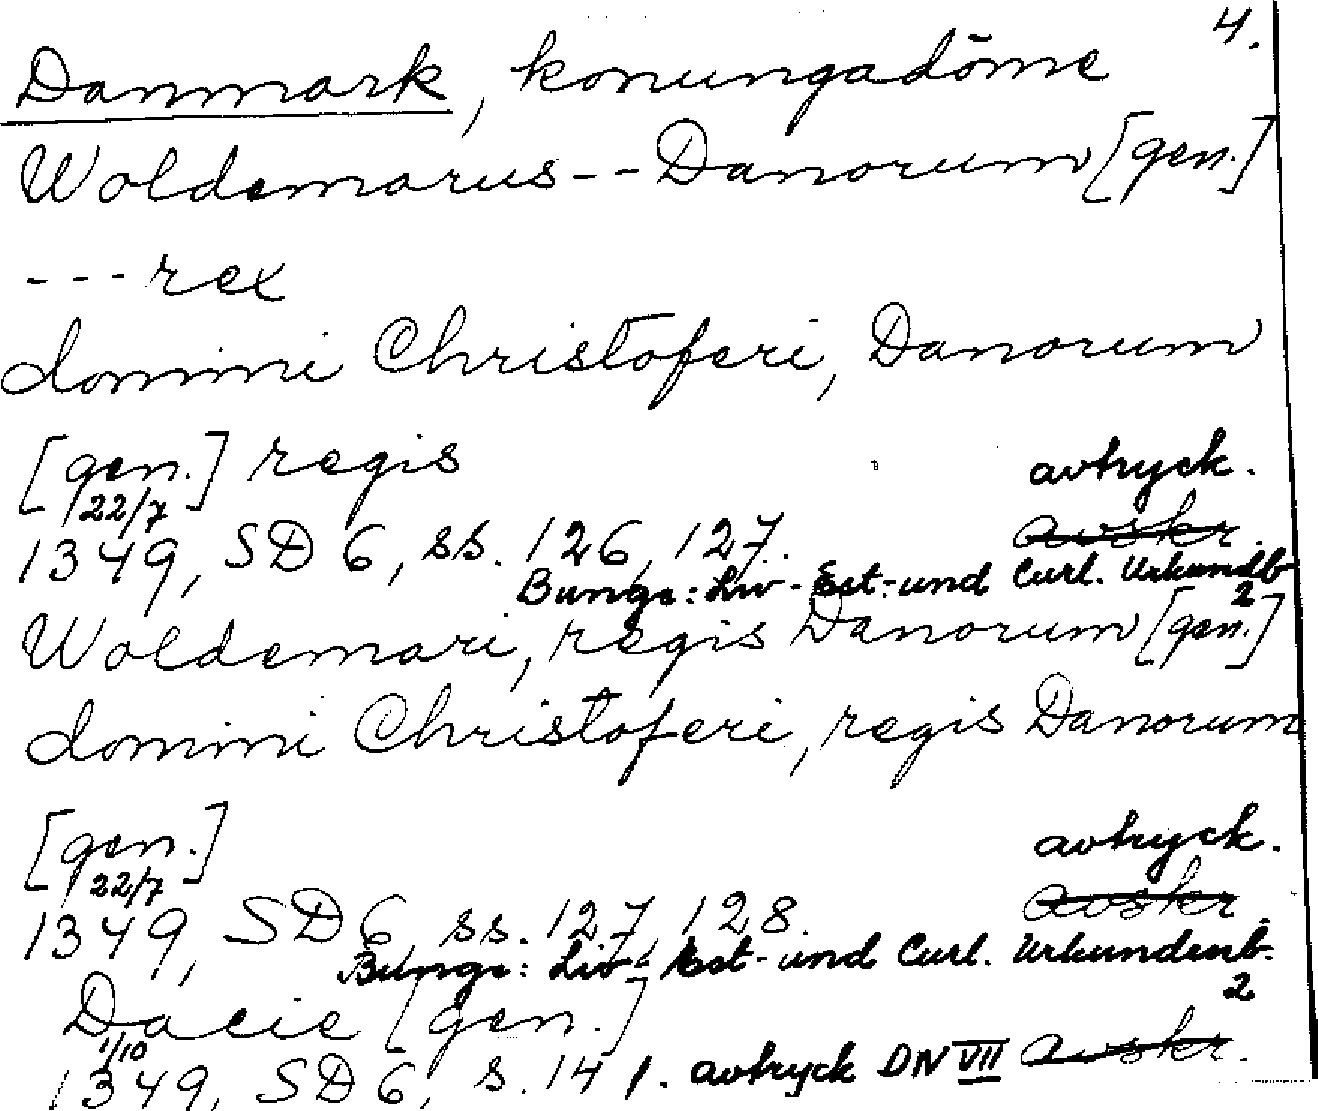 4.
Danmark, konungadöme
Woldemarus -- Danorum [gen.]
--- rex
domini Christoferi, Danorum
[gen.] regis avtryck.
22/7
1349, SD 6, ss. 126, 127. avskr.
Bunge: Liv- Est- und Curl. Urkundb 2
Woldemari, regis Danorum [gen.]
domini Christoferi, regis Danorum
[gen.] avtryck.
22/7
1349, SD 6, ss. 127, 128. avskr.
Bunge: Liv- Est- und Curl. Urkundenb. 2
Dacie [gen.]
1/10
1349, SD 6, s. 141. avtryck DN VII avskr.